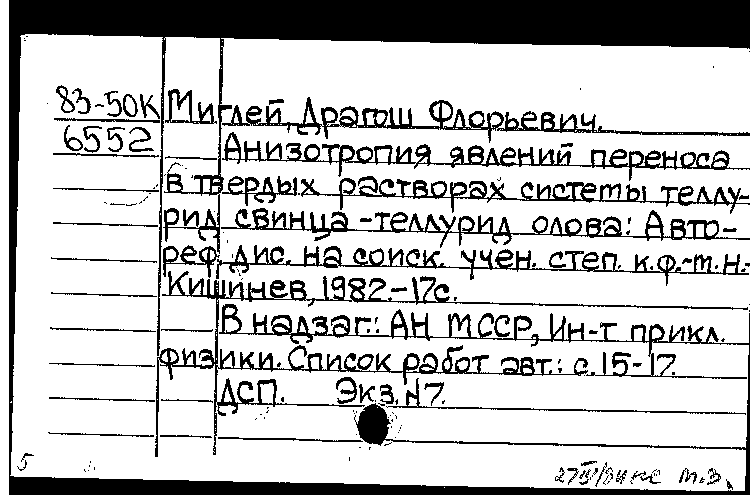 83-50К Миглей, Драгош Флорьевич.
6552 Анизотропия явлений переноса
в твердых растворах системы теллу-
рид свинца-теллурид олова: Авто-
реф. дис. на соиск. учен. степ. к.ф.-т.н.-
Кишинев, 1982.-17с.
В надзаг.: АН МССР, Ин-т прикл.
физики. Список работ авт.: с.15-17.
ДСП. Экз. №7.
5
т.з.